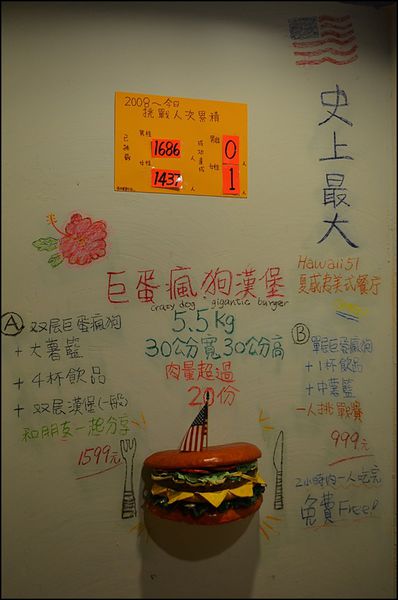 2008～今日
挑戰人次累積
已挑戰
男性
1686 人
女性
1437 人
成功達成
男性
0 人
女性
1 人
史上最大
Hawaii 51
夏威夷美式餐厅
巨蛋瘋狗漢堡
crazy dog gigantic burger
5.5kg
30公分寬30公分高
肉量超過
20份
A 双层巨蛋瘋狗
+ 大薯籃
+ 4杯飲品
+ 双层漢堡(一般)
和朋友一起分享
1599元
B 單层巨蛋瘋狗
+ 1杯飲品
+ 中薯籃
一人挑戰賽
999元
2小時內一人吃完
免費Free!